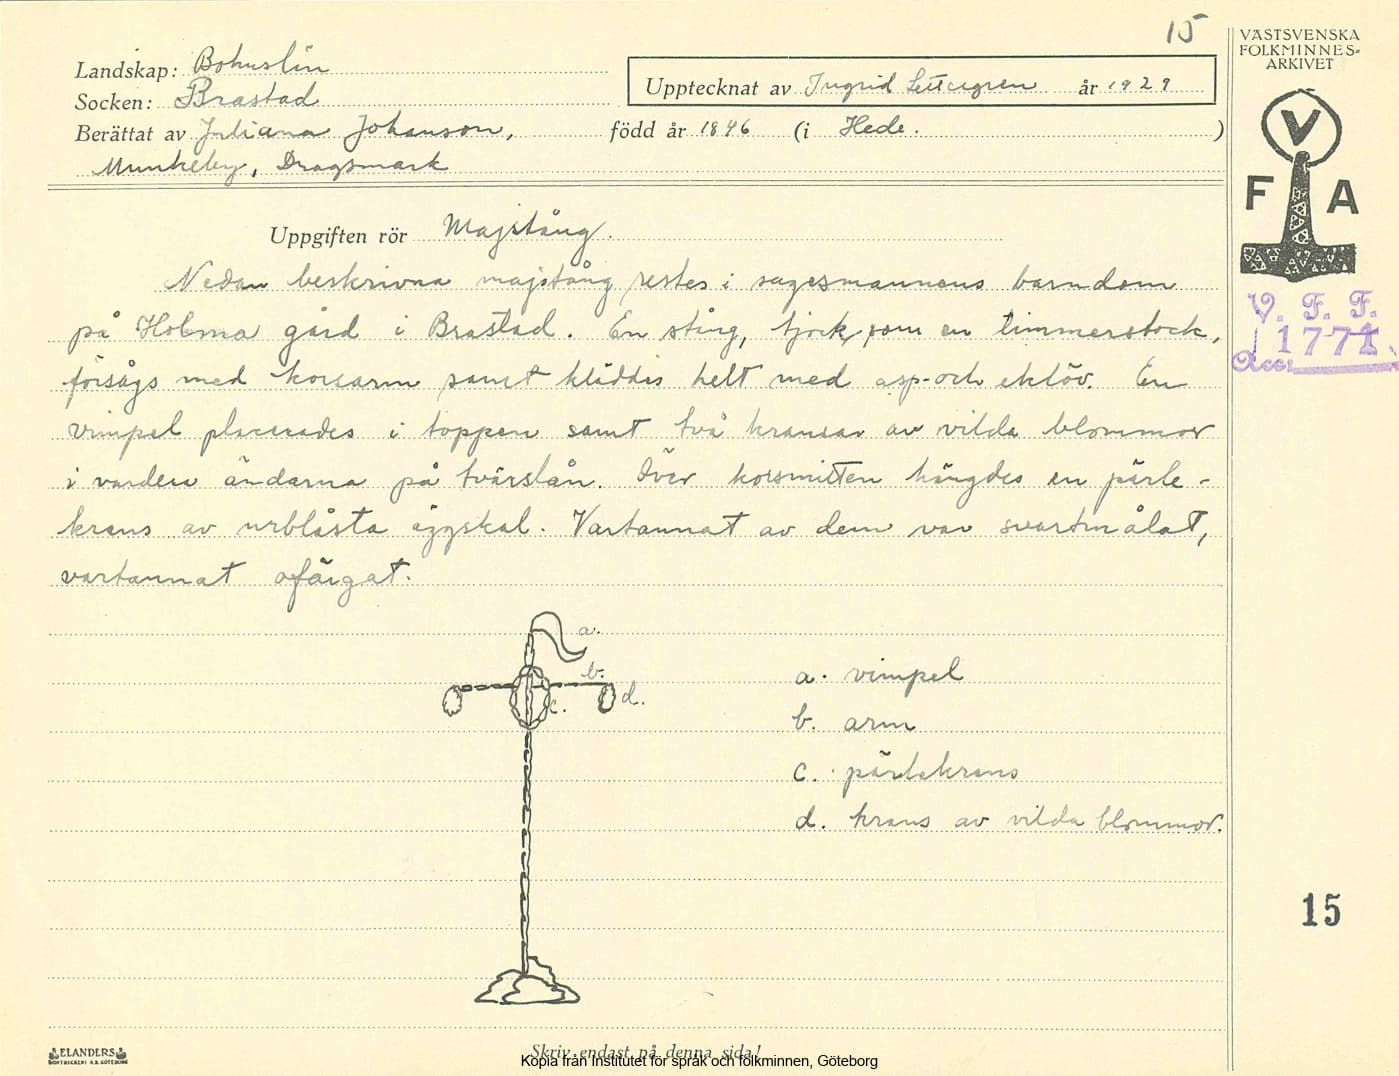 15
Landskap: Bohuslän
Socken: Brastad
Upptecknat av Ingrid år 1929
Berättat av Juliana Johanson, född år 1846 (i Hede. )
Munkeby, Dragsmark
Uppgiften rör Majstång.
Nedan beskrivna majstång restes i sagesmannens barndom
på Holma gård i Brastad. En stång, tjock som en timmerstock,
försågs med korsarm samt kläddes helt med asp- och eklöv. En
vimpel placerades i toppen samt två kransar av vilda blommor
i vardera ändarna på tvärslån. Över korsmitten hängdes en pärle-
krans av urblåsta äggskal. Vartannat av dem var svartmålat,
vartannat ofärgat.
a.
b.
c.
d.
a. vimpel
b. arm
c. pärlekrans
d. krans av vilda blommor.
VÄSTSVENSKA
FOLKMINNES-
ARKIVET
V
F A
V. F. F.
1771
Acc:
15
ELANDERS
BOKTRYCKERI A.B. GÖTEBORG
Skriv endast på denna sida!
Kopia från Institutet för språk och folkminnen, Göteborg